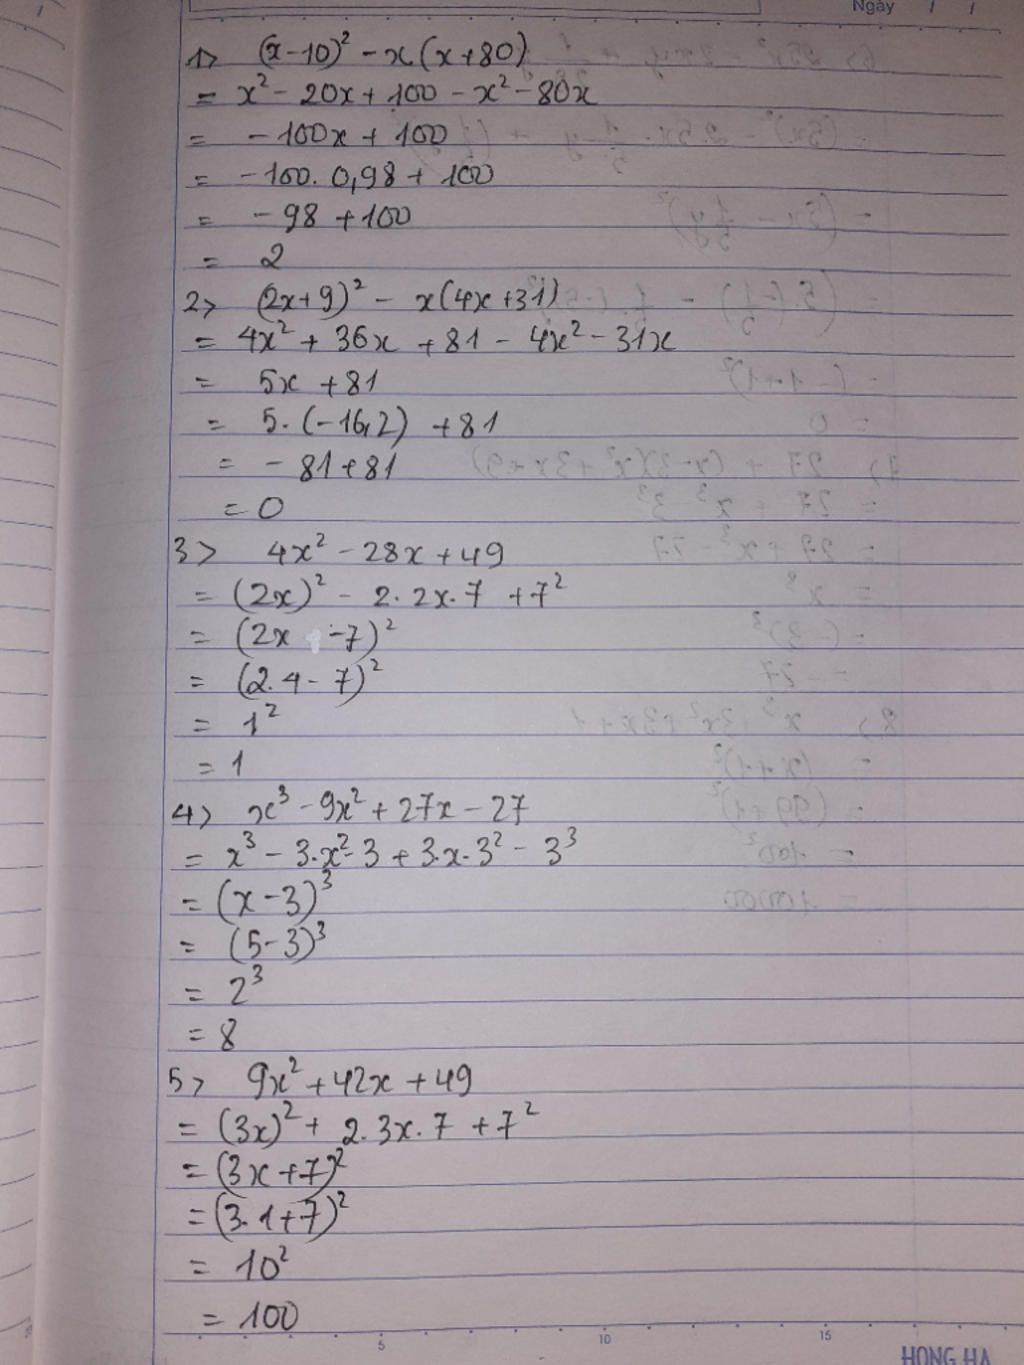 Ngày / /
1> (x-10)² - x(x+80)
= x² - 20x + 100 - x² - 80x
= -100x + 100
= -100. 0,98 + 100
= -98 + 100
= 2
2> (2x+9)² - x(4x+31)
= 4x² + 36x + 81 - 4x² - 31x
= 5x + 81
= 5. (-16,2) + 81
= -81 + 81
= 0
3> 4x² - 28x + 49
= (2x)² - 2. 2x. 7 + 7²
= (2x -7)²
= (2.4 - 7)²
= 1²
= 1
4> x³ - 9x² + 27x - 27
= x³ - 3.x². 3 + 3.x. 3² - 3³
= (x - 3)³
= (5-3)³
= 2³
= 8
5> 9x² + 42x + 49
= (3x)² + 2. 3x. 7 + 7²
= (3x + 7)²
= (3. 1 + 7)²
= 10²
= 100
5 10 15
HONG HA